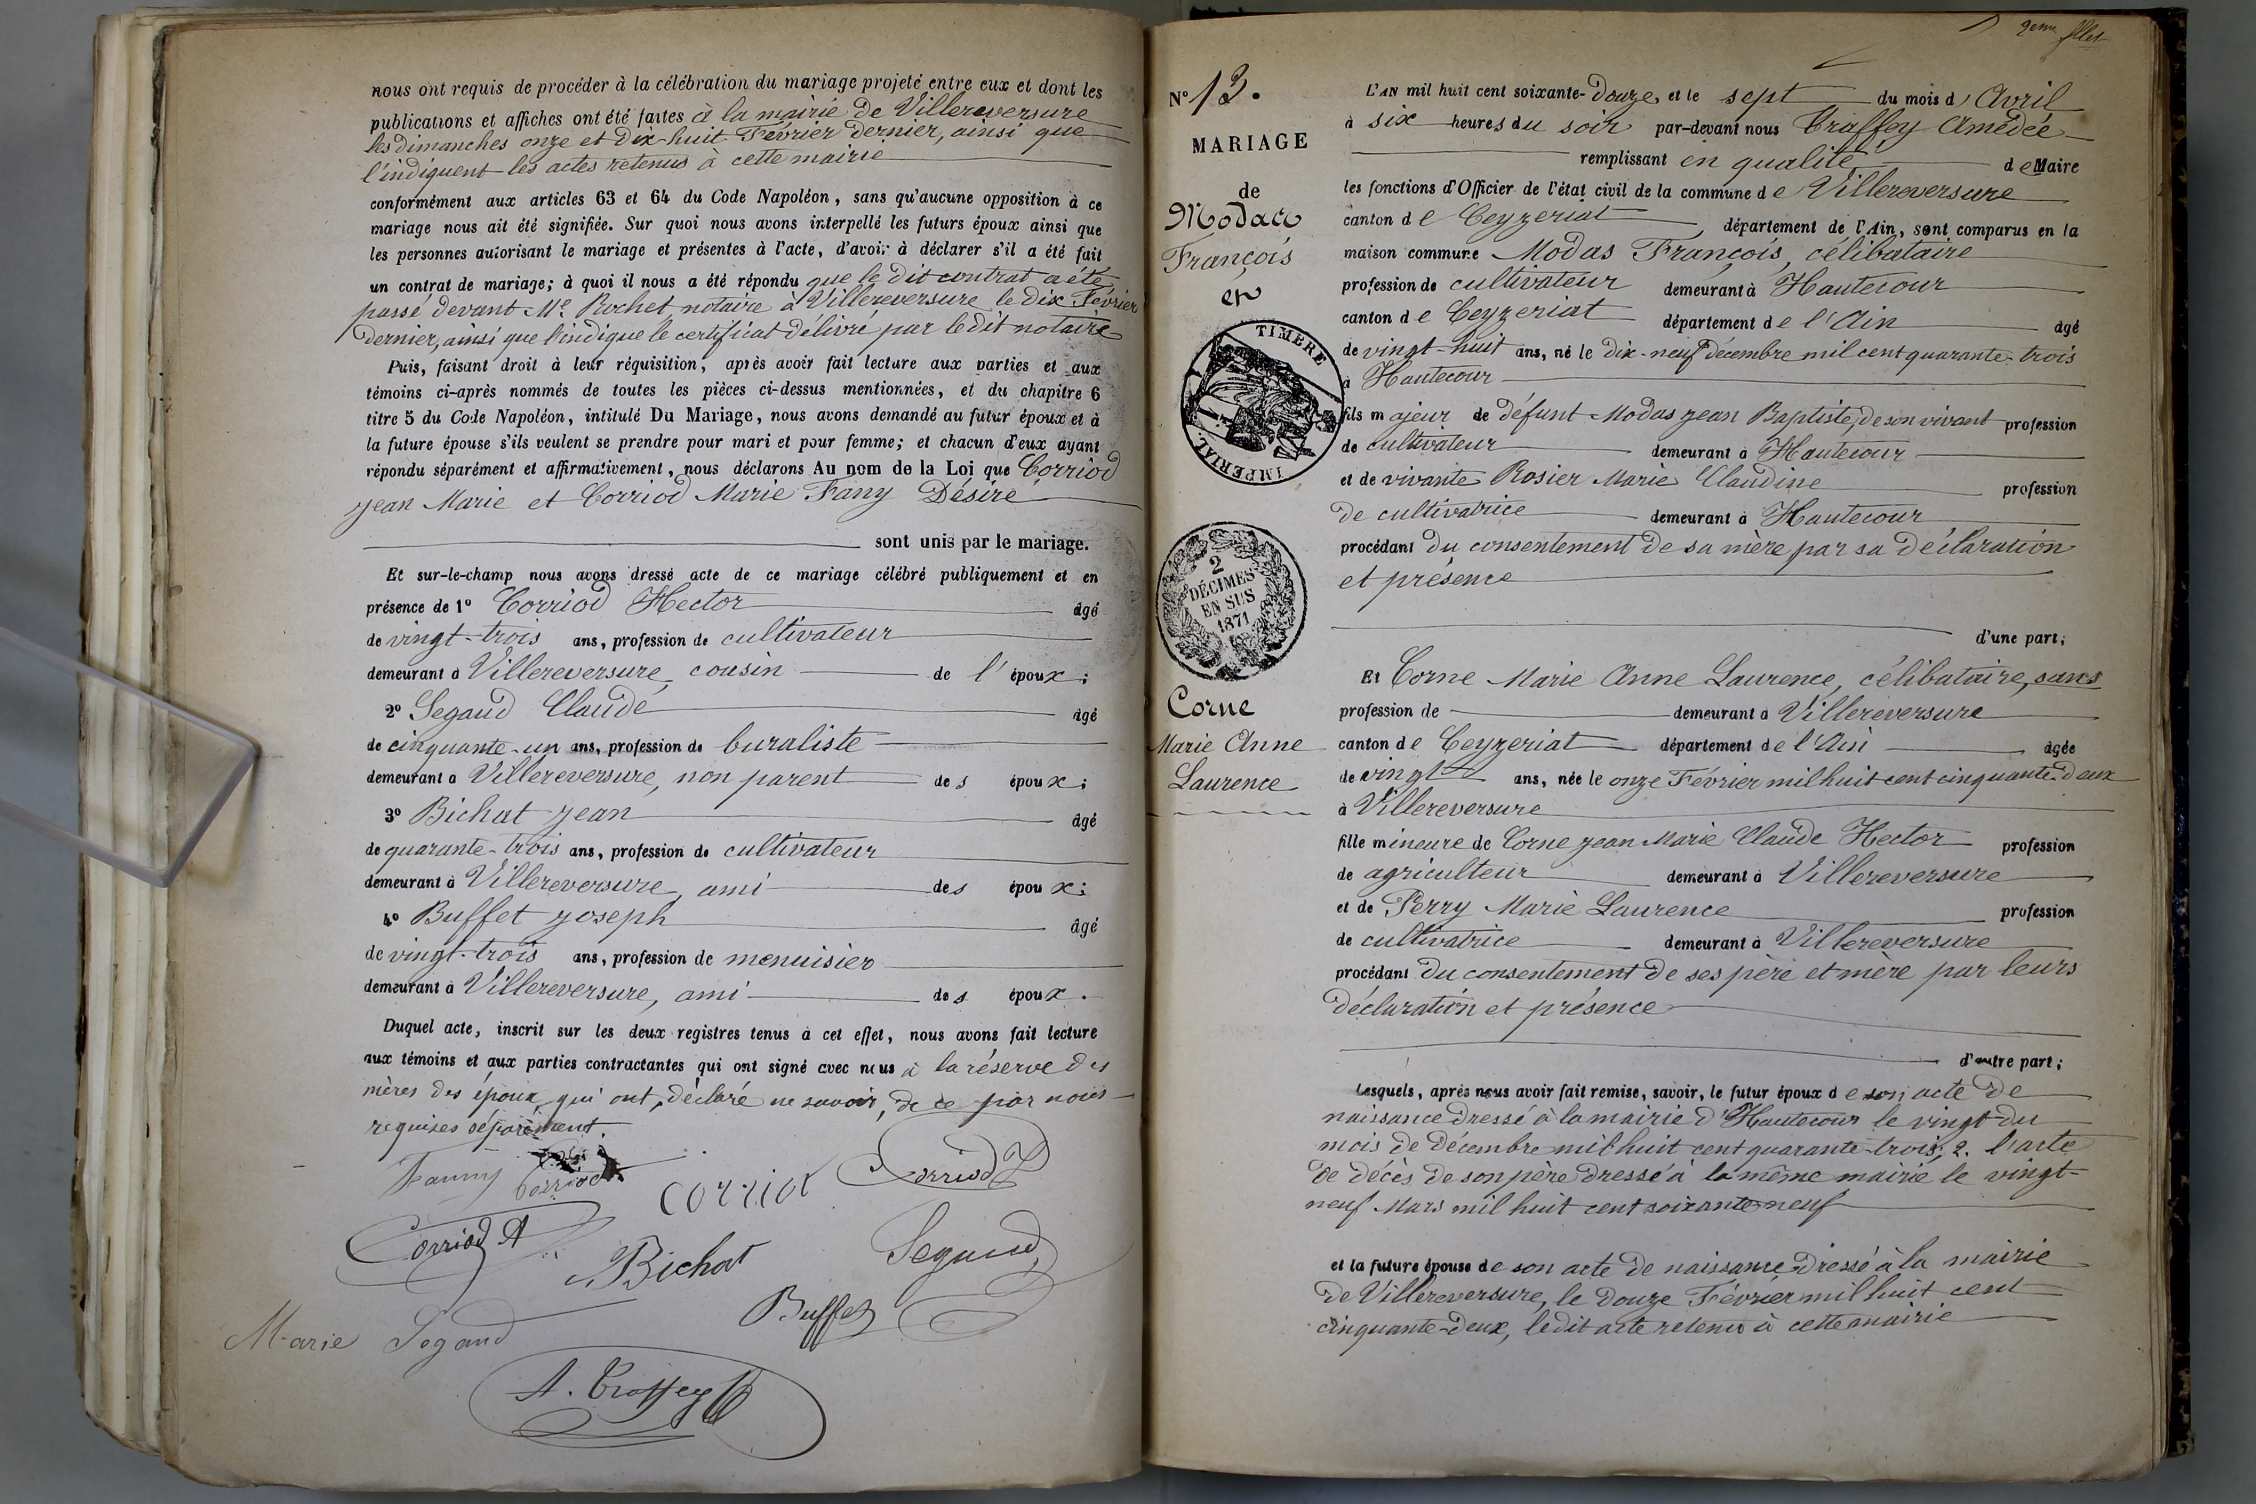 nous ont requis de procéder à la célébration du mariage projeté entre eux et dont les
publications et affiches ont été faites à la mairie de Villereversure
les dimanches onze et dix-huit Février dernier, ainsi que
l'indiquent les actes retenus à cette mairie
conformément aux articles 63 et 64 du Code Napoléon, sans qu'aucune opposition à ce
mariage nous ait été signifiée. Sur quoi nous avons interpellé les futurs époux ainsi que
les personnes autorisant le mariage et présentes à l'acte, d'avoir à déclarer s'il a été fait
un contrat de mariage; à quoi il nous a été répondu que le dit contrat a été
passé devant Me Rochet, notaire à Villereversure le dix Février
dernier, ainsi que l'indique le certificat délivré par le dit notaire
Puis, faisant droit à leur réquisition, après avoir fait lecture aux parties et aux
témoins ci-après nommés de toutes les pièces ci-dessus mentionnées, et du chapitre 6
titre 5 du Code Napoléon, intitulé Du Mariage, nous avons demandé au futur époux et à
la future épouse s'ils veulent se prendre pour mari et pour femme; et chacun d'eux ayant
répondu séparément et affirmativement, nous déclarons Au nom de la Loi que Corriod
jean Marie et Corriod Marie Fany Désiré
sont unis par le mariage.
Et sur-le-champ nous avons dressé acte de ce mariage célébré publiquement et en
présence de 1º Corriod Hector âgé
de vingt-trois ans, profession de cultivateur
demeurant à Villereversure, cousin de l'époux;
2º Segaud Claude âgé
de cinquante-un ans, profession de buraliste
demeurant à Villereversure, non parent des époux;
3º Bichat jean âgé
de quarante-trois ans, profession de cultivateur
demeurant à Villereversure, ami des époux;
4º Buffet joseph âgé
de vingt-trois ans, profession de menuisier
demeurant à Villereversure, ami des époux.
Duquel acte, inscrit sur les deux registres tenus à cet effet, nous avons fait lecture
aux témoins et aux parties contractantes qui ont signé avec nous à la réserve des
mères des époux qui ont déclaré ne savoir, de ce par nous
requises séparément.
Fanny Corriod
corriod
Corriod
Corriod A
Bichat
Segaud
Buffet
Marie Segaud
A. Traffey
Nº 13.
MARIAGE
de
Modas
François
et
TIMBRE IMPERIAL
2
DÉCIMES
EN SUS
1871
Corne
Marie Anne
Laurence
L'AN mil huit cent soixante-douze, et le sept du mois d'Avril
à six heures du soir par-devant nous Traffey Amédée
remplissant en qualité de Maire
les fonctions d'Officier de l'état civil de la commune de Villereversure
canton de Ceyzeriat département de l'Ain, sont comparus en la
maison commune Modas François, célibataire
profession de cultivateur demeurant à Hautecour
canton de Ceyzeriat département de l'Ain âgé
de vingt-huit ans, né le dix-neuf décembre mil cent quarante-trois
à Hautecour
fils majeur de défunt Modas jean Baptiste, de son vivant profession
de cultivateur demeurant à Hautecour
et de vivante Rosier Marie Claudine profession
de cultivatrice demeurant à Hautecour
procédant du consentement de sa mère par sa déclaration
et présence
d'une part;
Et Corne Marie Anne Laurence, célibataire, sans
profession de demeurant à Villereversure
canton de Ceyzeriat département de l'Ain âgée
de vingt ans, née le onze Février mil huit cent cinquante-deux
à Villereversure
fille mineure de Corne jean Marie Claude Hector profession
de agriculteur demeurant à Villereversure
et de Perry Marie Laurence profession
de cultivatrice demeurant à Villereversure
procédant du consentement de ses père et mère par leurs
déclaration et présence
d'autre part;
Lesquels, après nous avoir fait remise, savoir, le futur époux de son acte de
naissance dressé à la mairie d'Hautecour le vingt du
mois de décembre mil huit cent quarante-trois; 2. l'acte
de décès de son père dressé à la même mairie le vingt-
neuf Mars mil huit cent soixante-neuf
et la future épouse de son acte de naissance dressé à la mairie
de Villereversure, le douze Février mil huit cent
cinquante-deux, ledit acte retenu à cette mairie